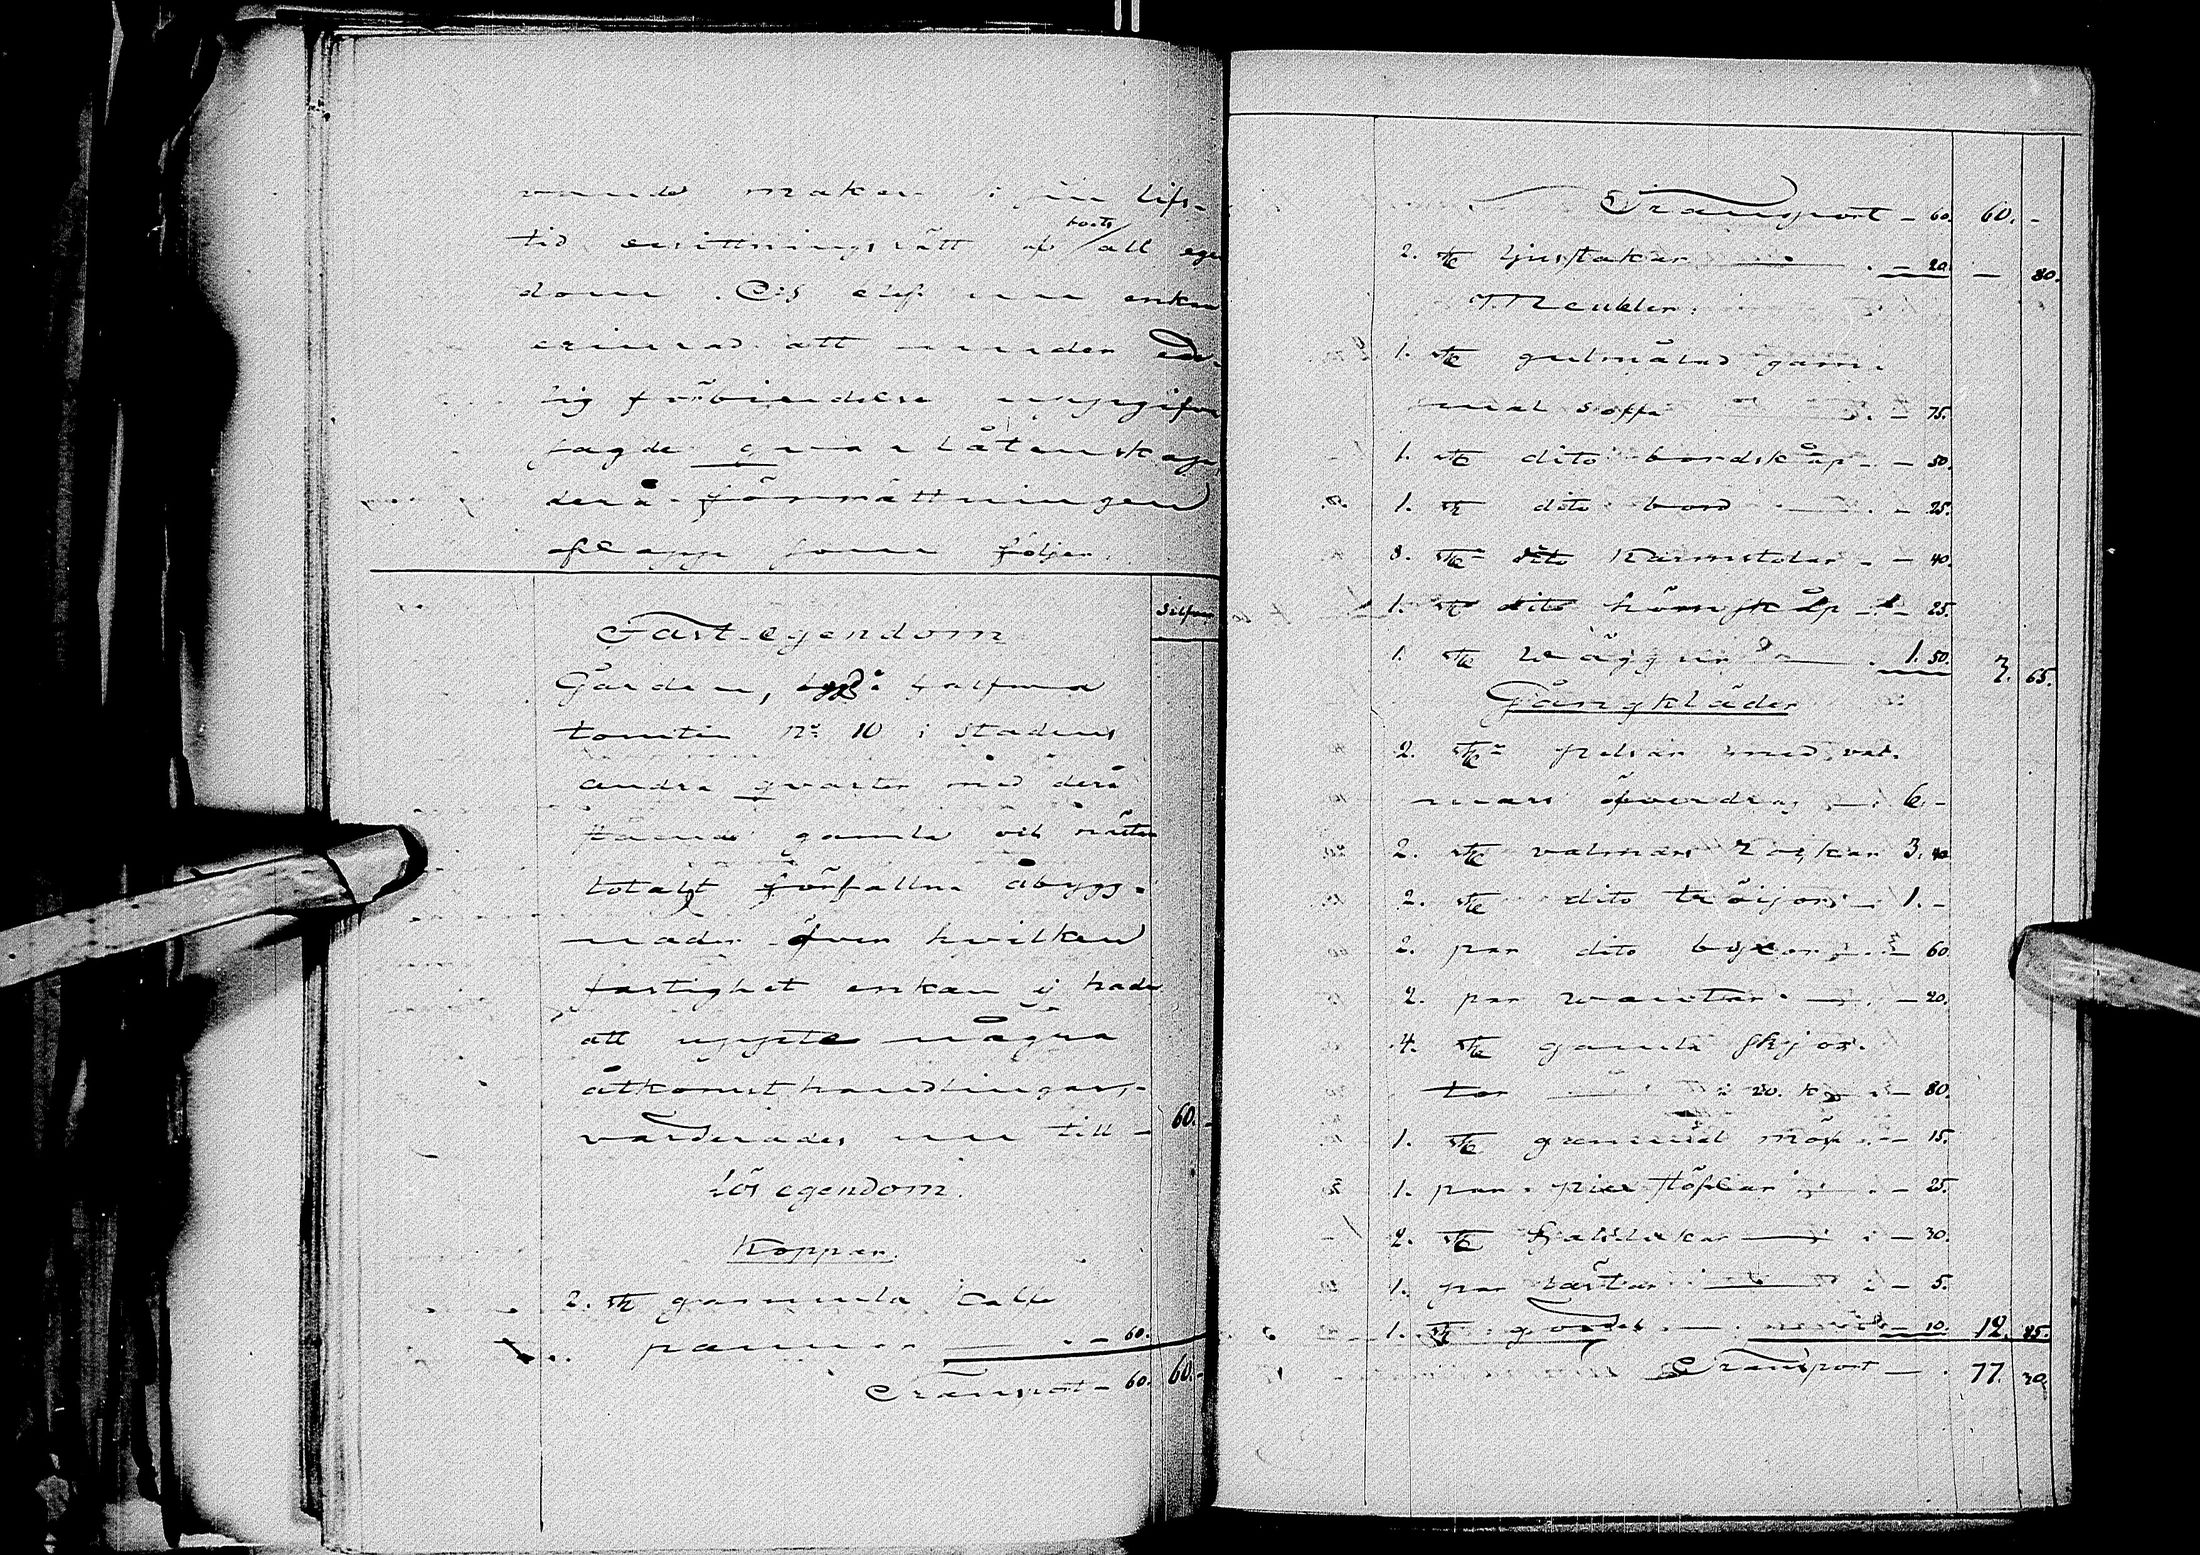 vande maken i sin lifs-
tid besittningsrätt af boets all egen
dom. Och blef nu enkan
erinrad att under ed-
lig förbindelse uppgifva
sagde qvarlåtenskap,
der å förrättningen
aflapp som följer.
Silfver
Fast egendom
Gården, halfva
tomten No 10 i stadens
andra qvarter med derå
gamla och nästan
totalt förfallna åbygg-
nader öfver hvilken
fastighet enkan ej hade
att uppte några
åtkomsthandlingar,
värderades nu till - 60. -
Lös egendom.
Koppar.
2. st gamla Caffe
pannor - 60.
Transport - 60. 60. -
Transport - 60. 60. -
2. st ljusstakar - 20. - 80.
Meubler.
1. st gulmålad gam-
mal soffa - 75.
1. st dito bordskåp - 50.
1. st dito bord - 25.
3. st dito Karmstolar - 40.
1. st dito hörnskåp - 25.
1. st väggur 1. 50. 3. 65.
Gångkläder
2. st pelsar med val-
mars öfverdrag 6. -
2. st valmars rockar 3. 40
2. st dito tröijor 1. -
2. par dito byxor - 60.
2. par vantar - 20.
4. st gamla skjor-
tor à 20. k - 80.
1. st gammal möss - 15.
1. par töflar - 25.
2. st halsdukar - 30.
1. par - 5.
1. st gördel - 10. 12. 85.
Transport - 77. 30.